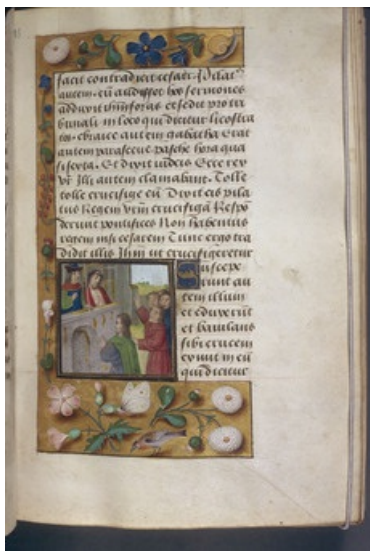 facit contradicit cesari. Pilatꝰ
autem. cū audisset hos sermones
adduxit ihm̄ foras et sedit pro tri
bunali in loco qui dicitur licostra
tos. ebraice autem gabatha Erat
autem parasceue pasche hora qua
si sexta. Et dixit iudeis Ecce rex
vr̄ Illi autem clamabant. Tolle
tolle crucifige eū Dixit eis pila
tus Regem vrm̄ crucifigā Respō
derunt pontifices Non habemus
regem nisi cesarem Tunc ergo tra
didit illis Ihm̄ ut crucifigeretur
Suscepe
runt au
tem illum
et eduxerūt
et baiulans
sibi crucem
exiuit in eū
qui dicitur